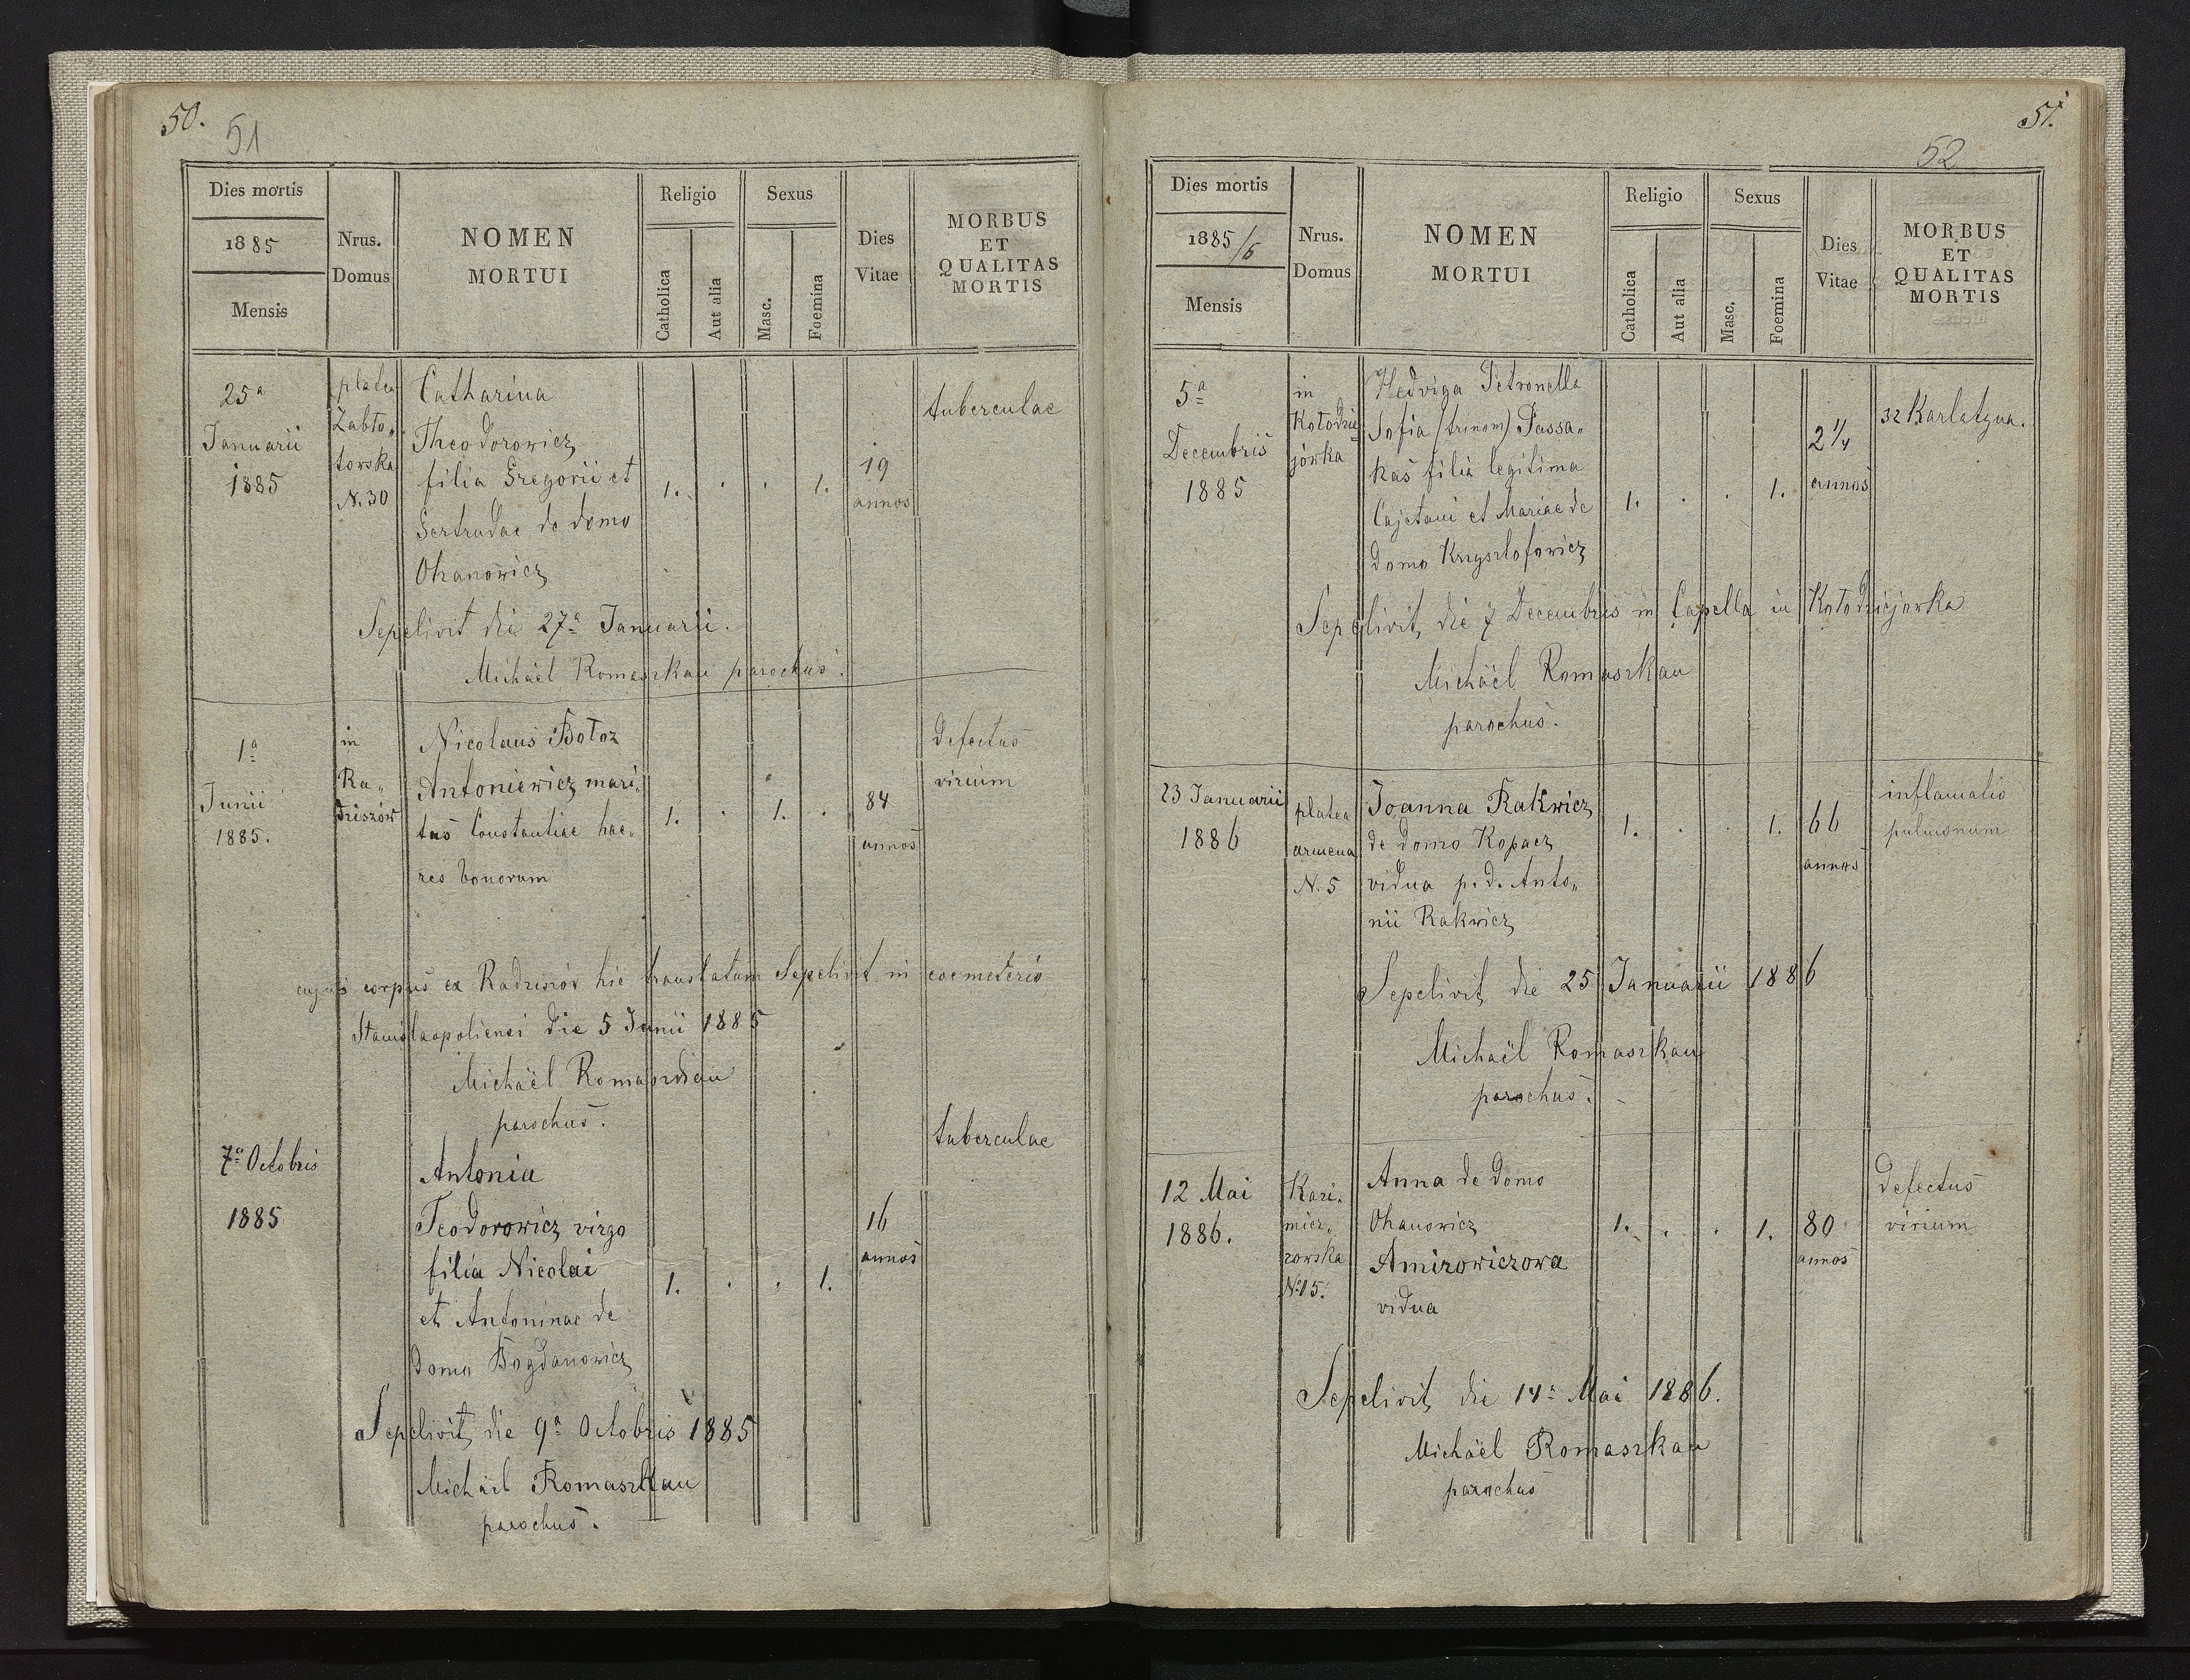 50.
51
Dies mortis
1885
Mensis
Nrus.
Domus
NOMEN
MORTUI
Religio
Catholica
Aut alia
Sexus
Masc.
Foemina
Dies
Vitae
MORBUS
ET
QUALITAS
MORTIS
25a
Januarii
1885
platea
Zabło„
towska
N. 30
Catharina
Theodorowicz
filia Gregorii et
Gertrudae de domo
Ohanowicz
1. . . 1.
19
annos
tuberculae
Sepelivit die 27a Januarii.
Michaël Romaszkan parochus.
1a
Junii
1885.
in
Ra„
dziszów
Nicolaus Bołoz
Antoniewicz mari„
tus Constantiae hae„
res bonorum
1. . 1. .
84
annos
defectus
virium
cujus corpus ex Radziszów hic translatum Sepelivit in coemeterio
Stanislaopoliensi die 5 Junii 1885
Michaël Romaszkan
parochus.
7a Octobris
1885
Antonia
Teodorowicz virgo
filia Nicolai
et Antoninae de
domo Bogdanowicz
1. . . 1.
16
annos
tuberculae
Sepelivit die 9a Octobris 1885
Michaël Romaszkan
parochus.
51.
52
Dies mortis
1885/6
Mensis
Nrus.
Domus
NOMEN
MORTUI
Religio
Catholica
Aut alia
Sexus
Masc.
Foemina
Dies
Vitae
MORBUS
ET
QUALITAS
MORTIS
5a
Decembris
1885
in
Kołodzie
jówka
Hedviga Petronella
Sofia (trinom) Passa„
kas filia legitima
Cajetani et Mariae de
domo Krzysztofowicz
1. . . 1.
2 1/4
annos
szkarlatyna.
Sepelivit die 7 Decembris in Capella in Kołodziejowka
Michaël Romaszkan
parochus.
23 Januarii
1886
platea
armena
N. 5
Joanna Rakwicz
de domo Kopacz
vidua p. d. Anto„
nii Rakwicz
1. . . 1.
66
annos
inflamatio
pulmonum
Sepelivit die 25 Januarii 1886
Michaël Romaszkan
parochus.
12 Mai
1886.
Kazi„
mier„
zowska
No 15.
Anna de domo
Ohanowicz
Amirowiczowa
vidua
1. . . 1.
80
annos
defectus
virium
Sepelivit die 14a Mai 1886.
Michaël Romaszkan
parochus